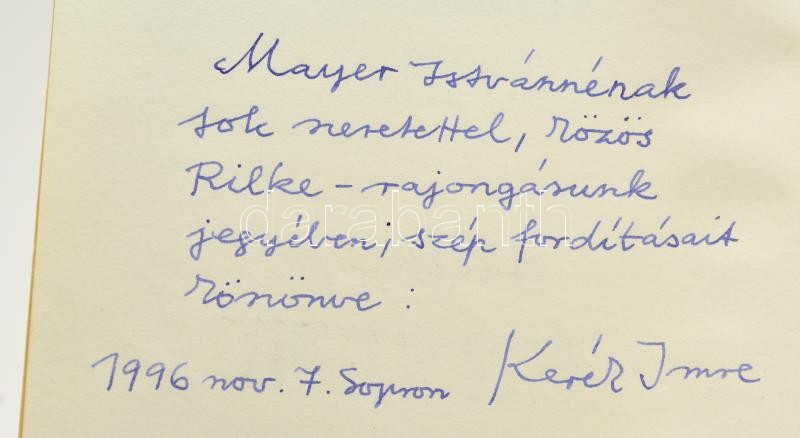 Mayer Istvánnénak
sok szeretettel, közös
Rilke - rajongásunk
jegyében, szép fordításait
köszönve :
1996 nov. 7. Sopron Kerék Imre
darabanth